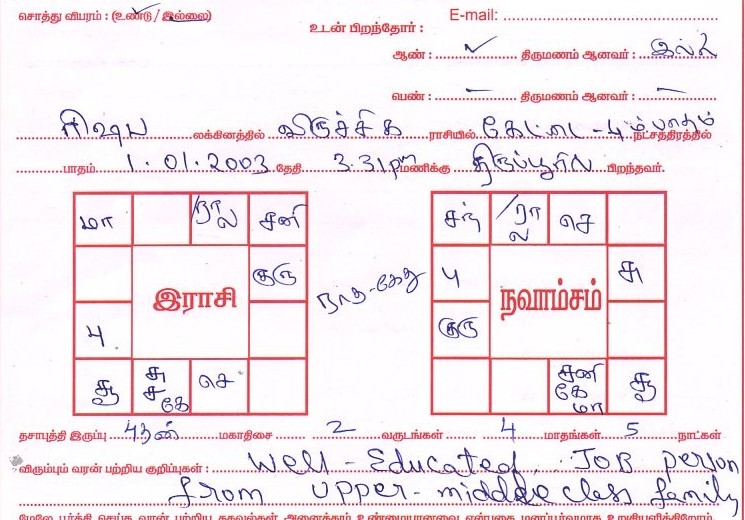 சொத்து விபரம் : (உண்டு / இல்லை)
E-mail:
உடன் பிறந்தோர் :
ஆண் : ✓ திருமணம் ஆனவர் : இல்லை
பெண் : – திருமணம் ஆனவர் : –
ரிஷப லக்கினத்தில் விருச்சிக ராசியில் கேட்டை - 4 ம் பாதம் நட்சத்திரத்தில்
பாதம் 1.01.2003 தேதி 3.31 pm மணிக்கு திருப்பூரில் பிறந்தவர்.
மா
ரா
ல
சனி
குரு
இராசி
பு
சூ
சு
ச
கே
செ
நாத-கேது
சந்
ரா
ல
செ
பு
சு
நவாம்சம்
குரு
சனி
கே
மா
சூ
தசாபுத்தி இருப்பு புதன் மகாதிசை 2 வருடங்கள் 4 மாதங்கள் 5 நாட்கள்
விரும்பும் வரன் பற்றிய குறிப்புகள் : Well-Educated. Job person
from upper-middle class family